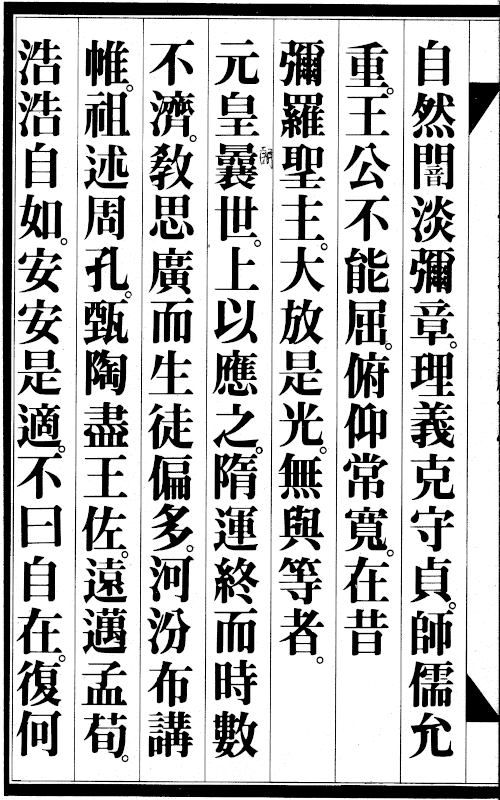 自然闇淡彌章。理義克守貞。師儒允
重。王公不能屈。俯仰常寬。在昔
彌羅聖主。大放是光。無與等者。
元皇曩世。上以應之。隋運終而時數
不濟。教思廣而生徒偏多。河汾布講
帷。祖述周孔。甄陶盡王佐。遠邁孟荀。
浩浩自如。安安是適。不曰自在。復何